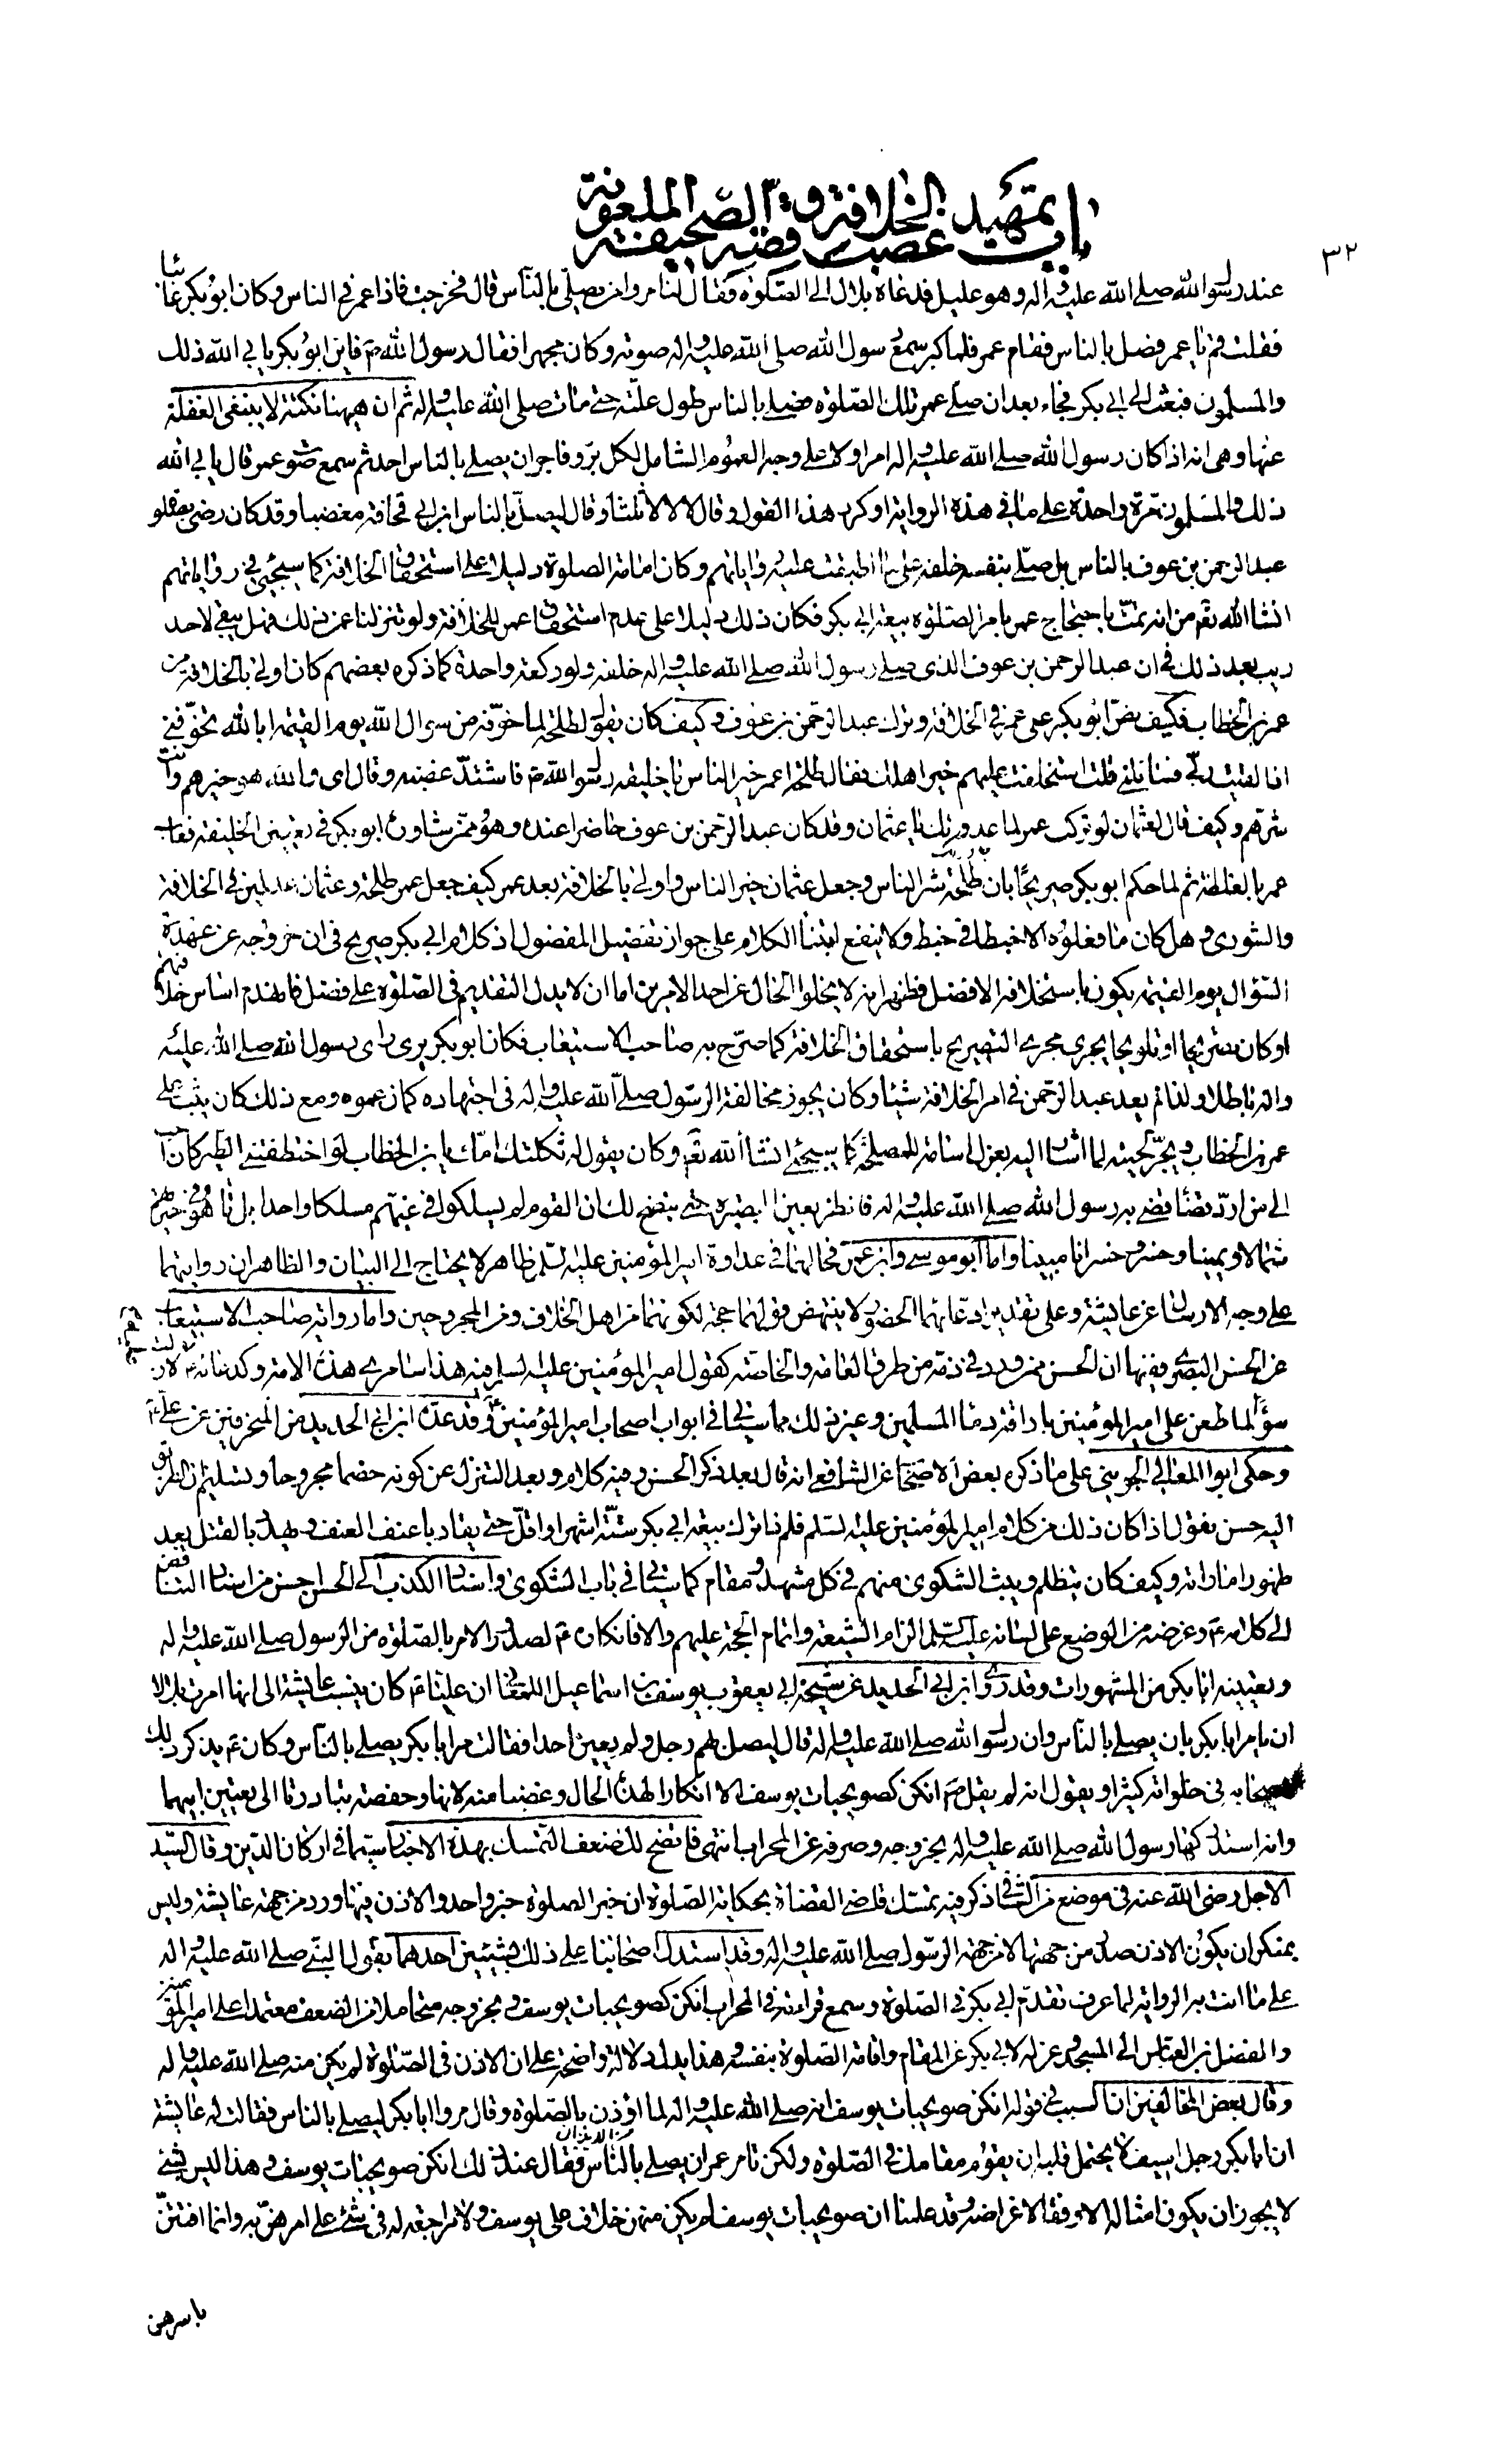 ٣٢
باب تمهيد غصب الخلافة وقصة الصحيفة الملعونة
عند رسول الله صلى الله عليه وآله وهو عليل فدعاه بلال الى الصلوة فقال لنا مروا من يصلى بالناس قال فخرجت فاذا عمر فى الناس وكان ابو بكر غائبا
فقلت قم يا عمر فصل بالناس فقام عمر فلما كبر سمع رسول الله صلى الله عليه واله صوته وكان مجهرا فقال رسول الله ص فاين ابو بكر يابى الله ذلك
والمسلمون فبعث الى ابى بكر فجاء بعد ان صلى عمر تلك الصلوة فصلى بالناس طول علته حتى مات صلى الله عليه واله ثم ان ههنا نكتة لا ينبغى الغفلة
عنها وهى انه اذا كان رسول الله صلى الله عليه واله امر اولا على وجه العموم الشامل لكل بر وفاجر ان يصلى بالناس احد ثم سمع صوت عمر قال يابى الله
ذلك والمسلمون مرة واحدة على ما فى هذه الرواية او كرر هذا القول وقال لا لا لا ثلثا وقال ليصل بالناس ابن ابى قحافة مغضبا وقد كان رضى بصلوة
عبد الرحمن بن عوف بالناس بل صلى بنفسه خلفه على ما اطبقت عليه رواياتهم وكان امامة الصلوة دليلا على استحقاق الخلافة كما سيجئ فى رواياتهم
انشاء الله تع من انه تمت باحتجاج عمر بامر الصلوة بيعة ابى بكر فكان ذلك دليلا على عدم استحقاق عمر للخلافة ولو تنزلنا عن ذلك فهل يبقى لاحد
ريب بعد ذلك فى ان عبد الرحمن بن عوف الذى صلى رسول الله صلى الله عليه واله خلفه ولو ركعة واحدة كما ذكره بعضهم كان اولى بالخلافة من
عمر بن الخطاب فكيف نص ابو بكر على عمر فى الخلافة وترك عبد الرحمن بن عوف وكيف كان يقول لطلحة لما خوفه من سوال الله يوم القيمة ابالله تخوفنى
اذا لقيت ربى فسائلنى قلت استخلفت عليهم خير اهلك فقال طلحة اعمر خير الناس يا خليفة رسول الله ص فاشتد غضبه وقال اى والله هو خيرهم وانت
شرهم وكيف قال لعثمان لو تركت عمر لما عدوتك يا عثمان وقد كان عبد الرحمن بن عوف حاضرا عنده وهو ممن شاوره ابو بكر فى تعيين الخليفة فعاب
عمر بالغلظة ثم لما حكم ابو بكر صريحا بان طلحة شر الناس وجعل عثمان خير الناس واولى بالخلافة بعد عمر كيف جعل عمر طلحة وعثمان عدلين فى الخلافة
والشورى وهل كان ما فعلوه الا خبطا فى خبط ولا ينفع ابتناء الكلام على جواز تفضيل المفضول اذ كلام ابى بكر صريح فى ان خروجه عن عهدة
السؤال يوم القيمة يكون باستخلاف الافضل فظهر انه لا يخلو الحال عن احد الامرين اما ان لا يدل التقديم فى الصلوة على فضل فانهدم اساس خلافتهم
او كان تصريحا او تلويحا يجرى مجرى التصريح باستحقاق الخلافة كما صرح به صاحب الاستيعاب فكان ابو بكر يرى راى رسول الله صلى الله عليه
واله باطلا ولذا لم يعد عبد الرحمن فى امر الخلافة شيئا وكان يجوز مخالفة الرسول صلى الله عليه واله فى اجتهاده كما زعموه ومع ذلك كان يثب على
عمر بن الخطاب ويجر لحيته لما اشار اليه بعزل اسامة للمصلحة كما سيجئ انشاء الله تع وكان يقول له ثكلتك امك يا بن الخطاب لو اختطفتنى الطير كان احب
الى من ان ارد قضاء قضى به رسول الله صلى الله عليه واله فانظر بعين البصيرة حتى يتضح لك ان القوم لم يسلكوا فى غيهم مسلكا واحدا بل تاهوا فى حيرتهم
شمالا ويمينا وخسروا خسرانا مبينا واما ابو موسى وابن عمر فحالهما فى عداوة امير المؤمنين عليه السلم ظاهر لا يحتاج الى البيان والظاهر ان روايتهما
على وجه الارسال عن عايشة وعلى تقدير ادعائهما الحضور لا ينتهض قولهما حجة لكونهما من اهل الخلاف ومن المجروحين واما رواية صاحب الاستيعاب
عن الحسن البصرى ففيها ان الحسن ممن ورد فى ذمه من طرق العامة والخاصة كقول امير المؤمنين عليه السلم فيه هذا سامرى هذه الامة وكدعائه ع
لما طعن على امير المؤمنين باراقة دماء المسلمين وغير ذلك مما سياتى فى ابواب اصحاب امير المؤمنين ع وقد عده ابن ابى الحديد من المنحرفين عن على ع
وحكى ابو المعالى الجوينى على ما ذكره بعض الاصحاب عن الشافعى انه قال بعد ذكر الحسن وفيه كلام وبعد التنزل عن كونه خصما مجروحا وتسليم الطريق
اليه حسن نقول اذا كان ذلك من كلام امير المؤمنين عليه السلم فلم ترك بيعة ابى بكر ستة اشهر او اقل حتى يقاد باعنف العنف ويهدد بالقتل بعد
ظهور اماراته وكيف كان يتظلم ويبث الشكوى منهم فى كل مشهد ومقام كما سياتى فى باب الشكوى واسناد الكذب الى الحسن احسن من اسناد التناقض
الى كلامه ع وغرضه من الوضع على لسانه عليه السلم الزام الشيعة واتمام الحجة عليهم والا فانكاره ع لصدور الامر بالصلوة من الرسول صلى الله عليه واله
وتعيينه ابا بكر من المشهورات وقد روى ابن ابى الحديد عن شيخه ابى يعقوب يوسف بن اسماعيل اللمعانى ان عليا ع كان ينسب عايشة الى انها امرت بلالا
ان يامر ابا بكر بان يصلى بالناس وان رسول الله صلى الله عليه واله قال ليصل بهم رجل ولم يعين احدا فقالت مر ابا بكر يصلى بالناس وكان ع يذكر ذلك
لاصحابه فى خلواته كثيرا ويقول انه لم يقل ص انكن كصويحبات يوسف الا انكارا لهذه الحال وغضبا منه لانها وحفصة تبادرتا الى تعيين ابيهما
وانه استدركها رسول الله صلى الله عليه واله بخروجه وصرفه عن المحراب انتهى فاتضح لك ضعف التمسك بهذه الاخبار سيما فى اركان الدين وقال السيد
الاجل رضى الله عنه فى موضع من الشافى ذكر فيه تمسك قاضى القضاة بحكاية الصلوة ان خبر الصلوة خبر واحد والاذن فيها ورد من جهة عايشة وليس
بمنكر ان يكون الاذن صدر من جهتها لا من جهة الرسول صلى الله عليه واله وقد استدل اصحابنا على ذلك بشيئين احدهما بقول النبى صلى الله عليه واله
على ما اتت به الرواية لما عرف تقدم ابى بكر فى الصلوة وسمع قراءته فى المحراب انكن كصويحبات يوسف وبخروجه متحاملا من الضعف معتمدا على امير المؤمنين
والفضل بن العباس الى المسجد وعزله لابى بكر عن المقام واقامة الصلوة بنفسه وهذا يدل دلالة واضحة على ان الاذن فى الصلوة لم يكن منه صلى الله عليه واله
وقال بعض المخالفين ان السبب فى قوله انكن صويحبات يوسف انه صلى الله عليه واله لما اوذن بالصلوة وقال مروا ابا بكر ليصلى بالناس فقالت له عايشة
ان ابا بكر رجل اسيف لا يحتمل قلبه ان يقوم مقامك فى الصلوة ولكن تامر عمر ان يصلى بالناس فقال عند ذلك انكن صويحبات يوسف وهذا ليس بشئ
لا يجوز ان يكون امثاله الا وفقا لاغراضه وقد علمنا ان صويحبات يوسف لم يكن منهن خلاف على يوسف ولا مراجعة له فى شئ على امرهن به وانما افتتن
باسرهن